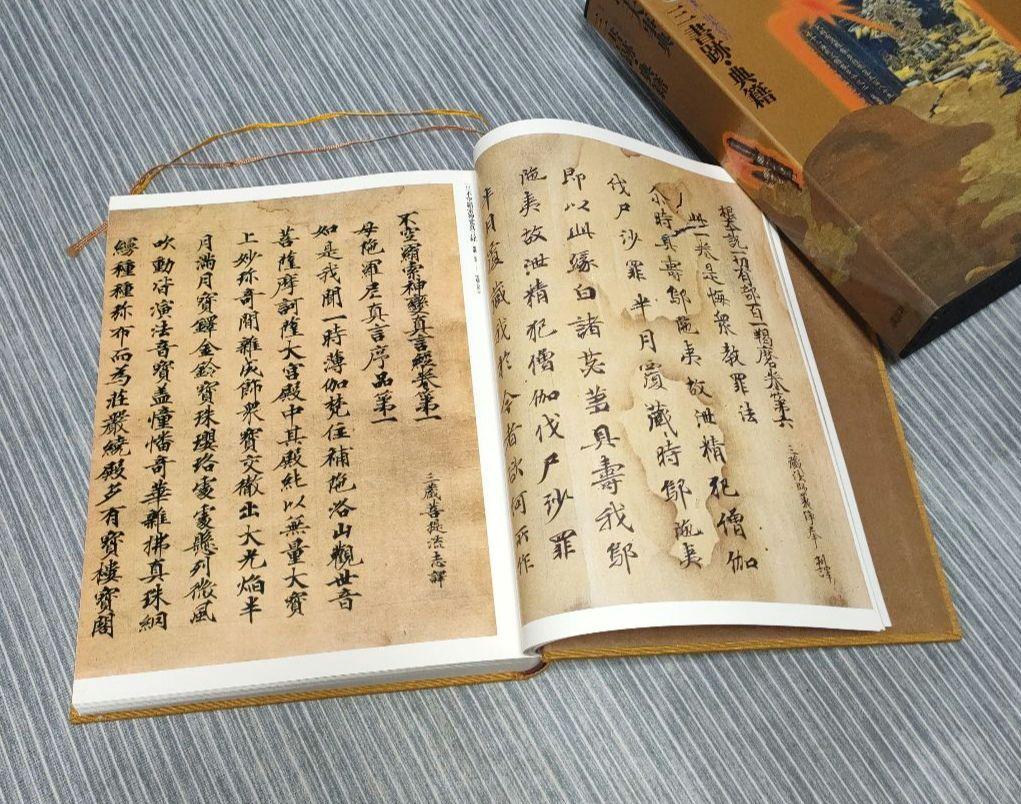 三書跡・典籍
三書跡・典籍
根本說一切有部百一羯磨卷第六
三藏法師義淨奉 制譯
此一卷是悔衆教罪法
尒時具壽鄔陁夷故泄精犯僧伽
伐尸沙罪半月覆藏時鄔陁夷
即以此緣白諸苾芻具壽我鄔
陁夷故泄精犯僧伽伐尸沙罪
半月覆藏我於今者欲何所作
不空羂索神變真言經卷第一
三藏菩提流志譯
母陁羅尼真言序品第一
如是我聞一時薄伽梵住補陁洛山觀世音
菩薩摩訶薩大宮殿中其殿純以無量大寶
上妙珎奇間雜成飾衆寶交徹出大光焰半
月滿月寶鐸金鈴寶珠瓔珞處處懸列微風
吹動皆演法音寶盖幢幡奇華雜拂真珠網
縵種種弥布而為莊嚴繞殿多有寶樓寶閣